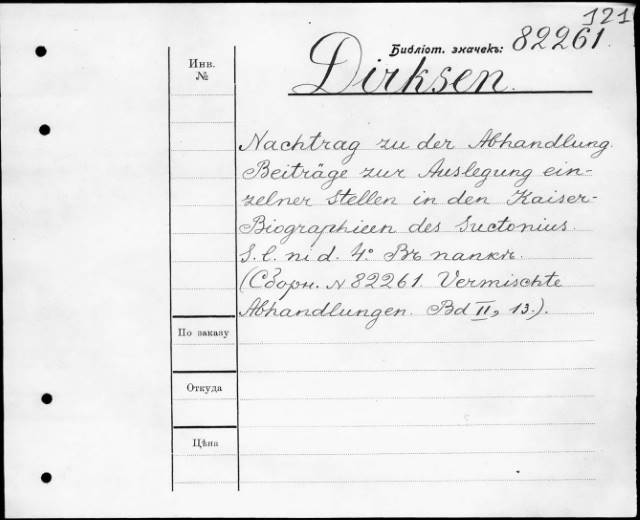 121
Библіот. значекъ: 82261.
Dirksen.
Инв.
№
Nachtrag zu der Abhandlung.
Beiträge zur Auslegung ein-
zelner Stellen in den Kaiser-
Biographieen des Suetonius.
S. l. ni d. 4°. Въ папкѣ.
(Сборн. N 82261. Vermischte
Abhandlungen. Bd II, 13.).
По заказу
Откуда
Цѣна